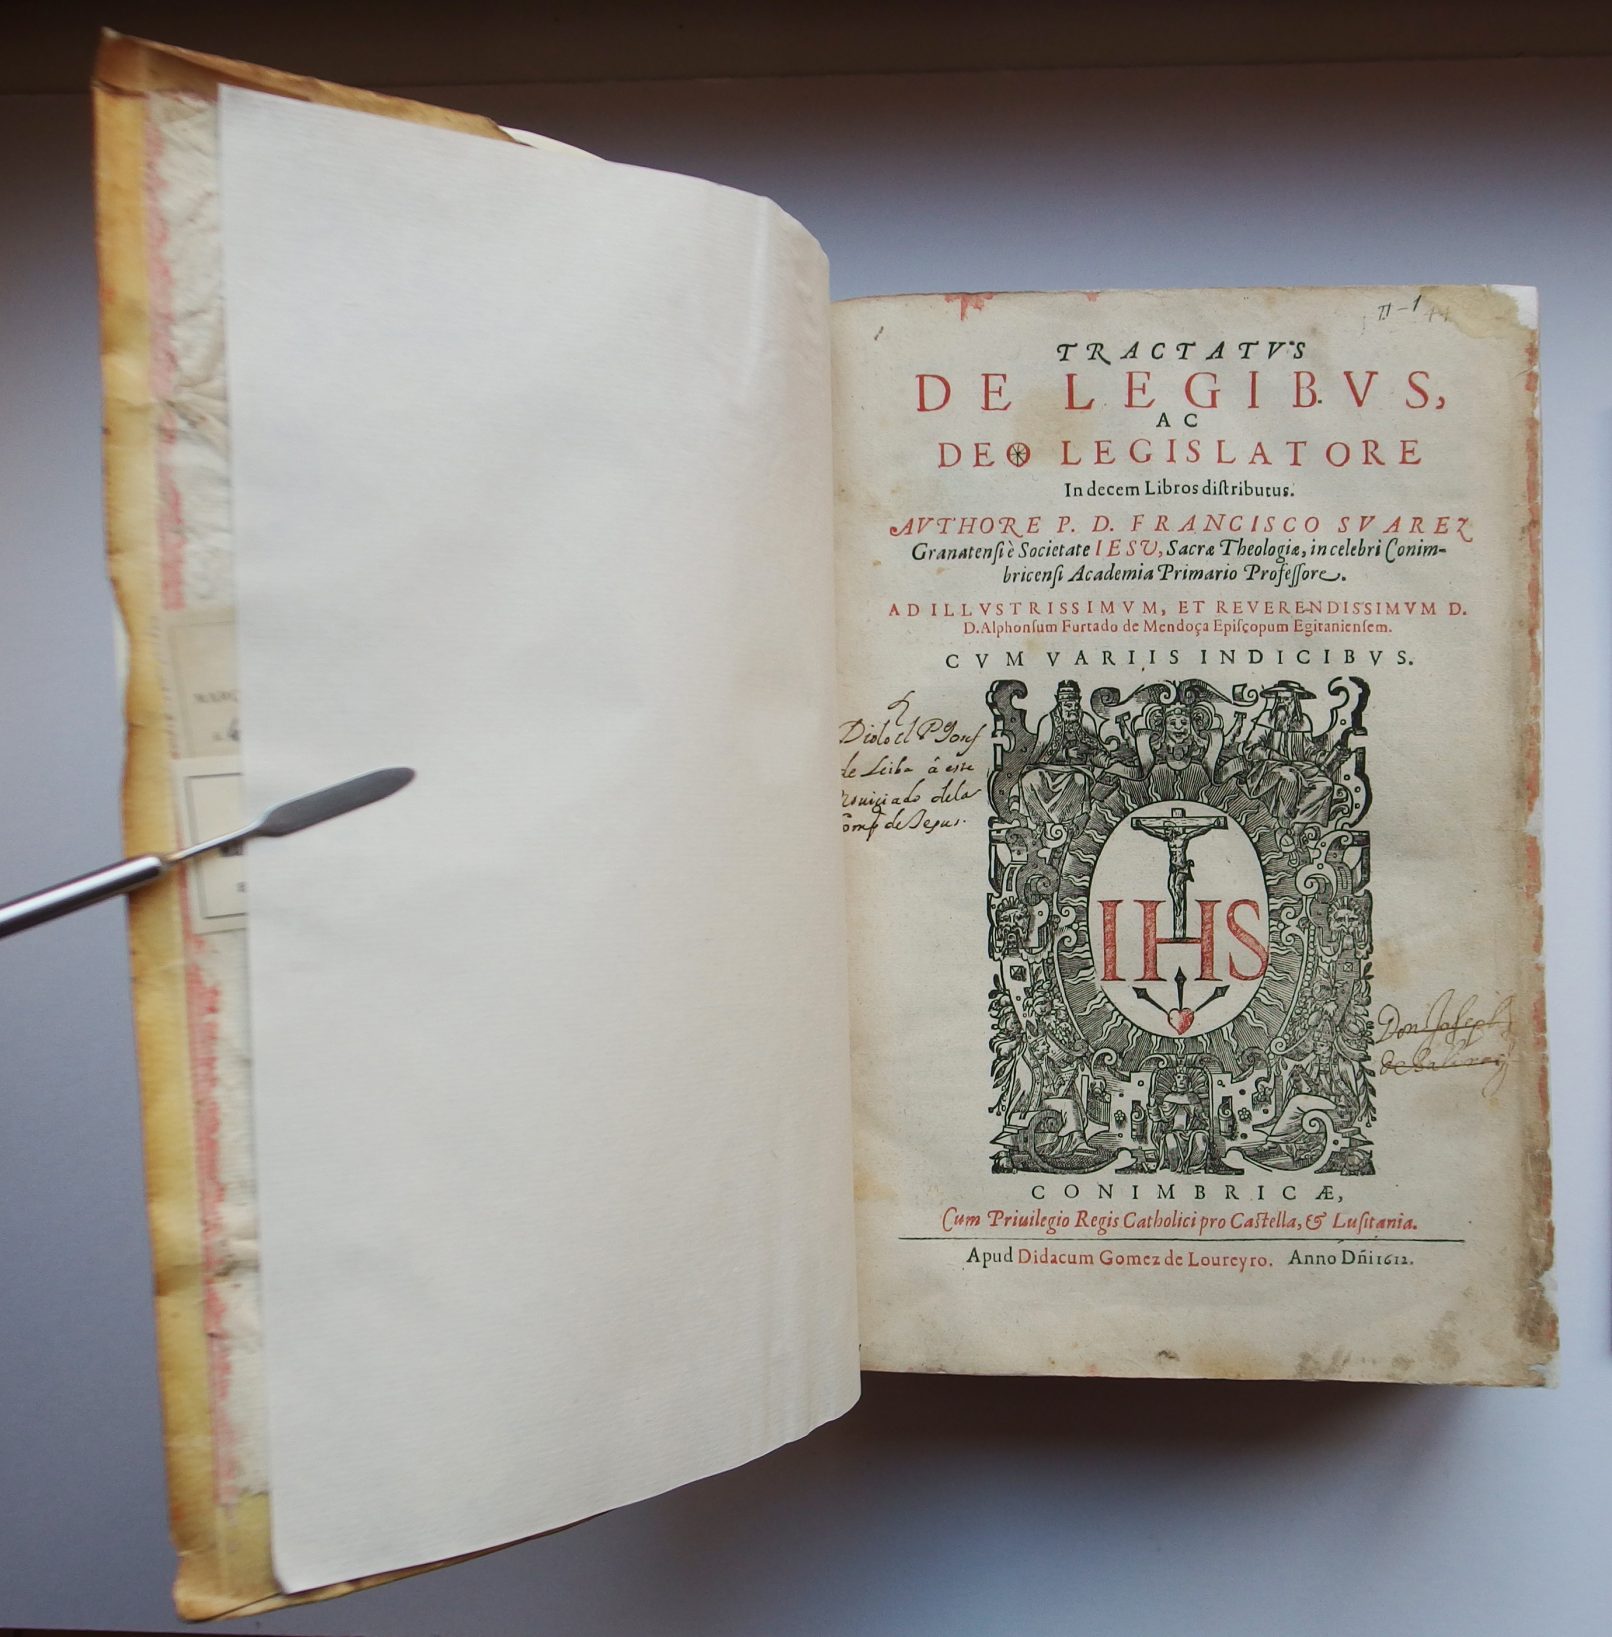 II-1
TRACTATVS
DE LEGIBVS,
AC
DEO LEGISLATORE
In decem Libros diſtributus.
AVTHORE P. D. FRANCISCO SVAREZ
Granatenſi è Societate IESV, Sacræ Theologiæ, in celebri Conim-
bricenſi Academia Primario Profeſſore.
AD ILLVSTRISSIMVM, ET REVERENDISSIMVM D.
D. Alphonſum Furtado de Mendoça Epiſcopum Egitanienſem.
CVM VARIIS INDICIBVS.
Diolo el P Josef
de Leiba â este
Nouiciado dela
Comp de Jesus.
IHS
Don Joseph
CONIMBRICÆ,
Cum Priuilegio Regis Catholici pro Caſtella, & Luſitania.
Apud Didacum Gomez de Loureyro. Anno Dñi 1612.